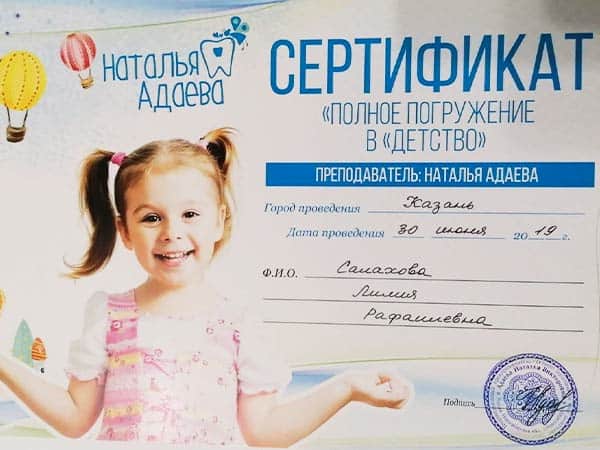 Наталья
Адаева
СЕРТИФИКАТ
«ПОЛНОЕ ПОГРУЖЕНИЕ
В «ДЕТСТВО»
ПРЕПОДАВАТЕЛЬ: НАТАЛЬЯ АДАЕВА
Город проведения Казань
Дата проведения 30 июня 2019 г.
Ф.И.О. Салахова
Лилия
Рафаилевна
Подпись
Адаева Наталья Викторовна